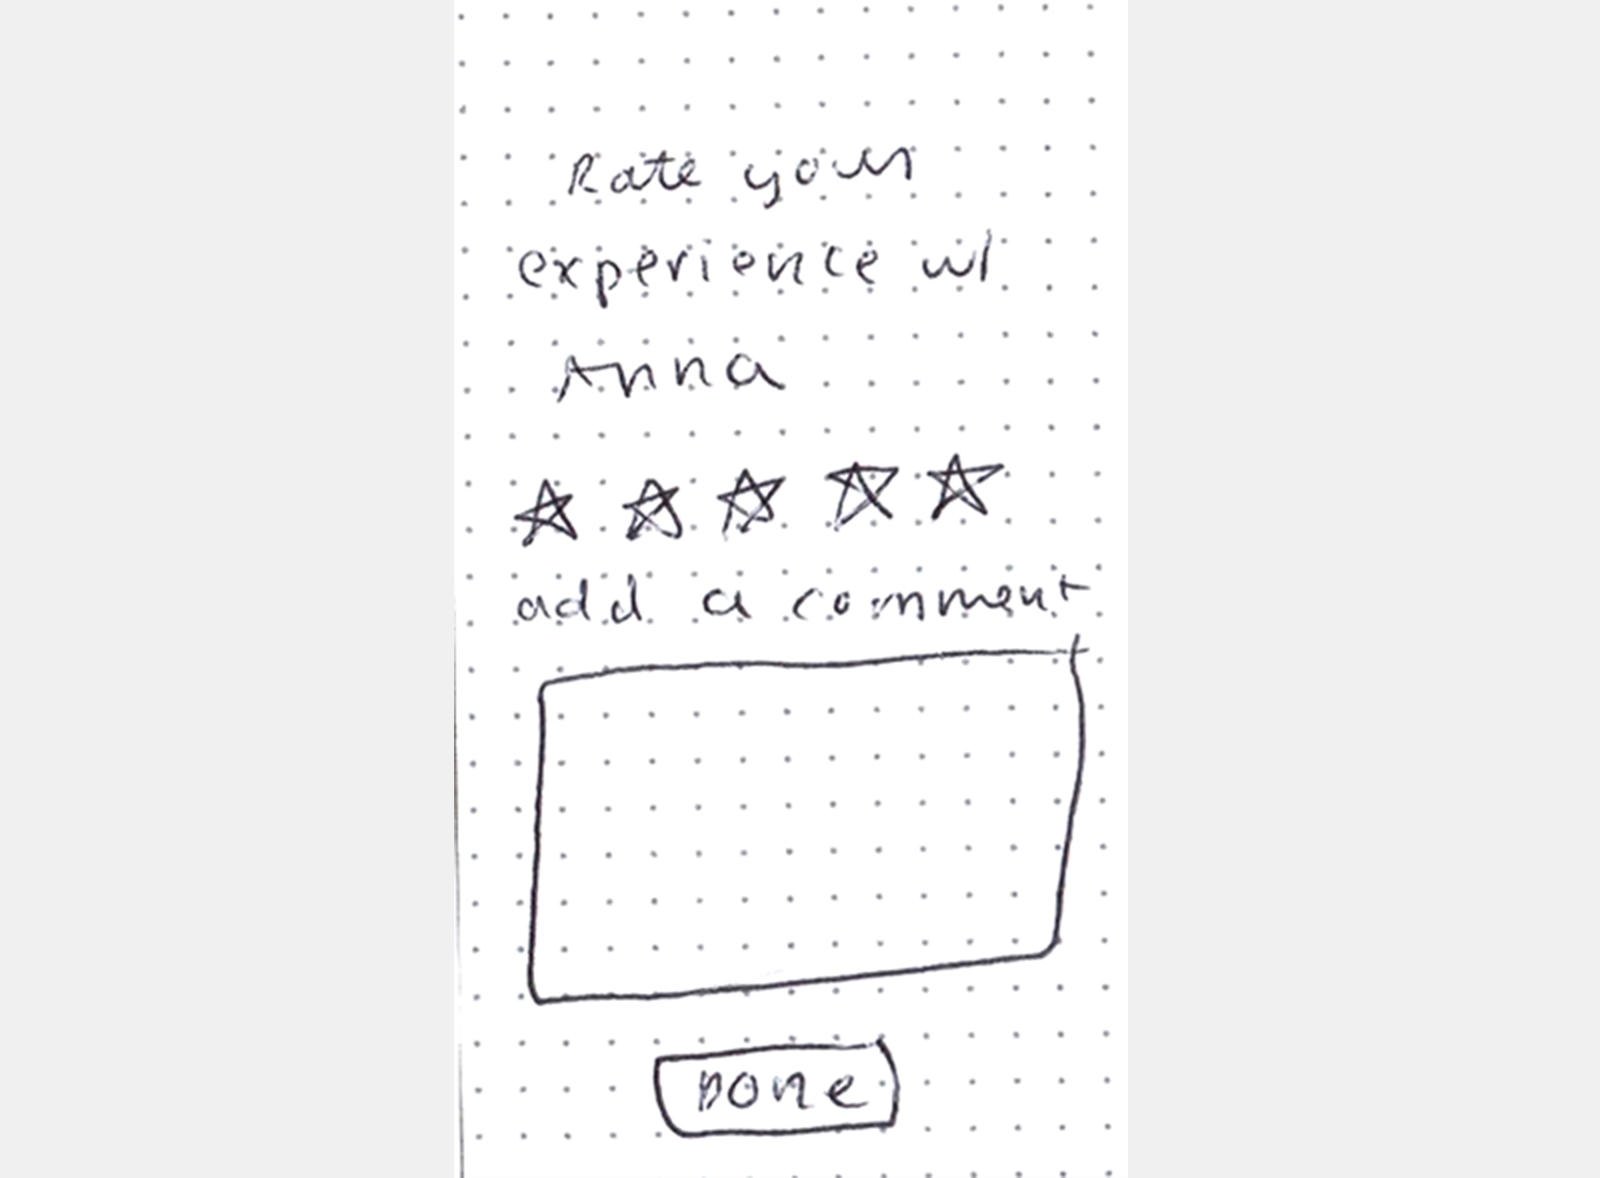 Rate your
experience w/
Anna
add a comment
Done